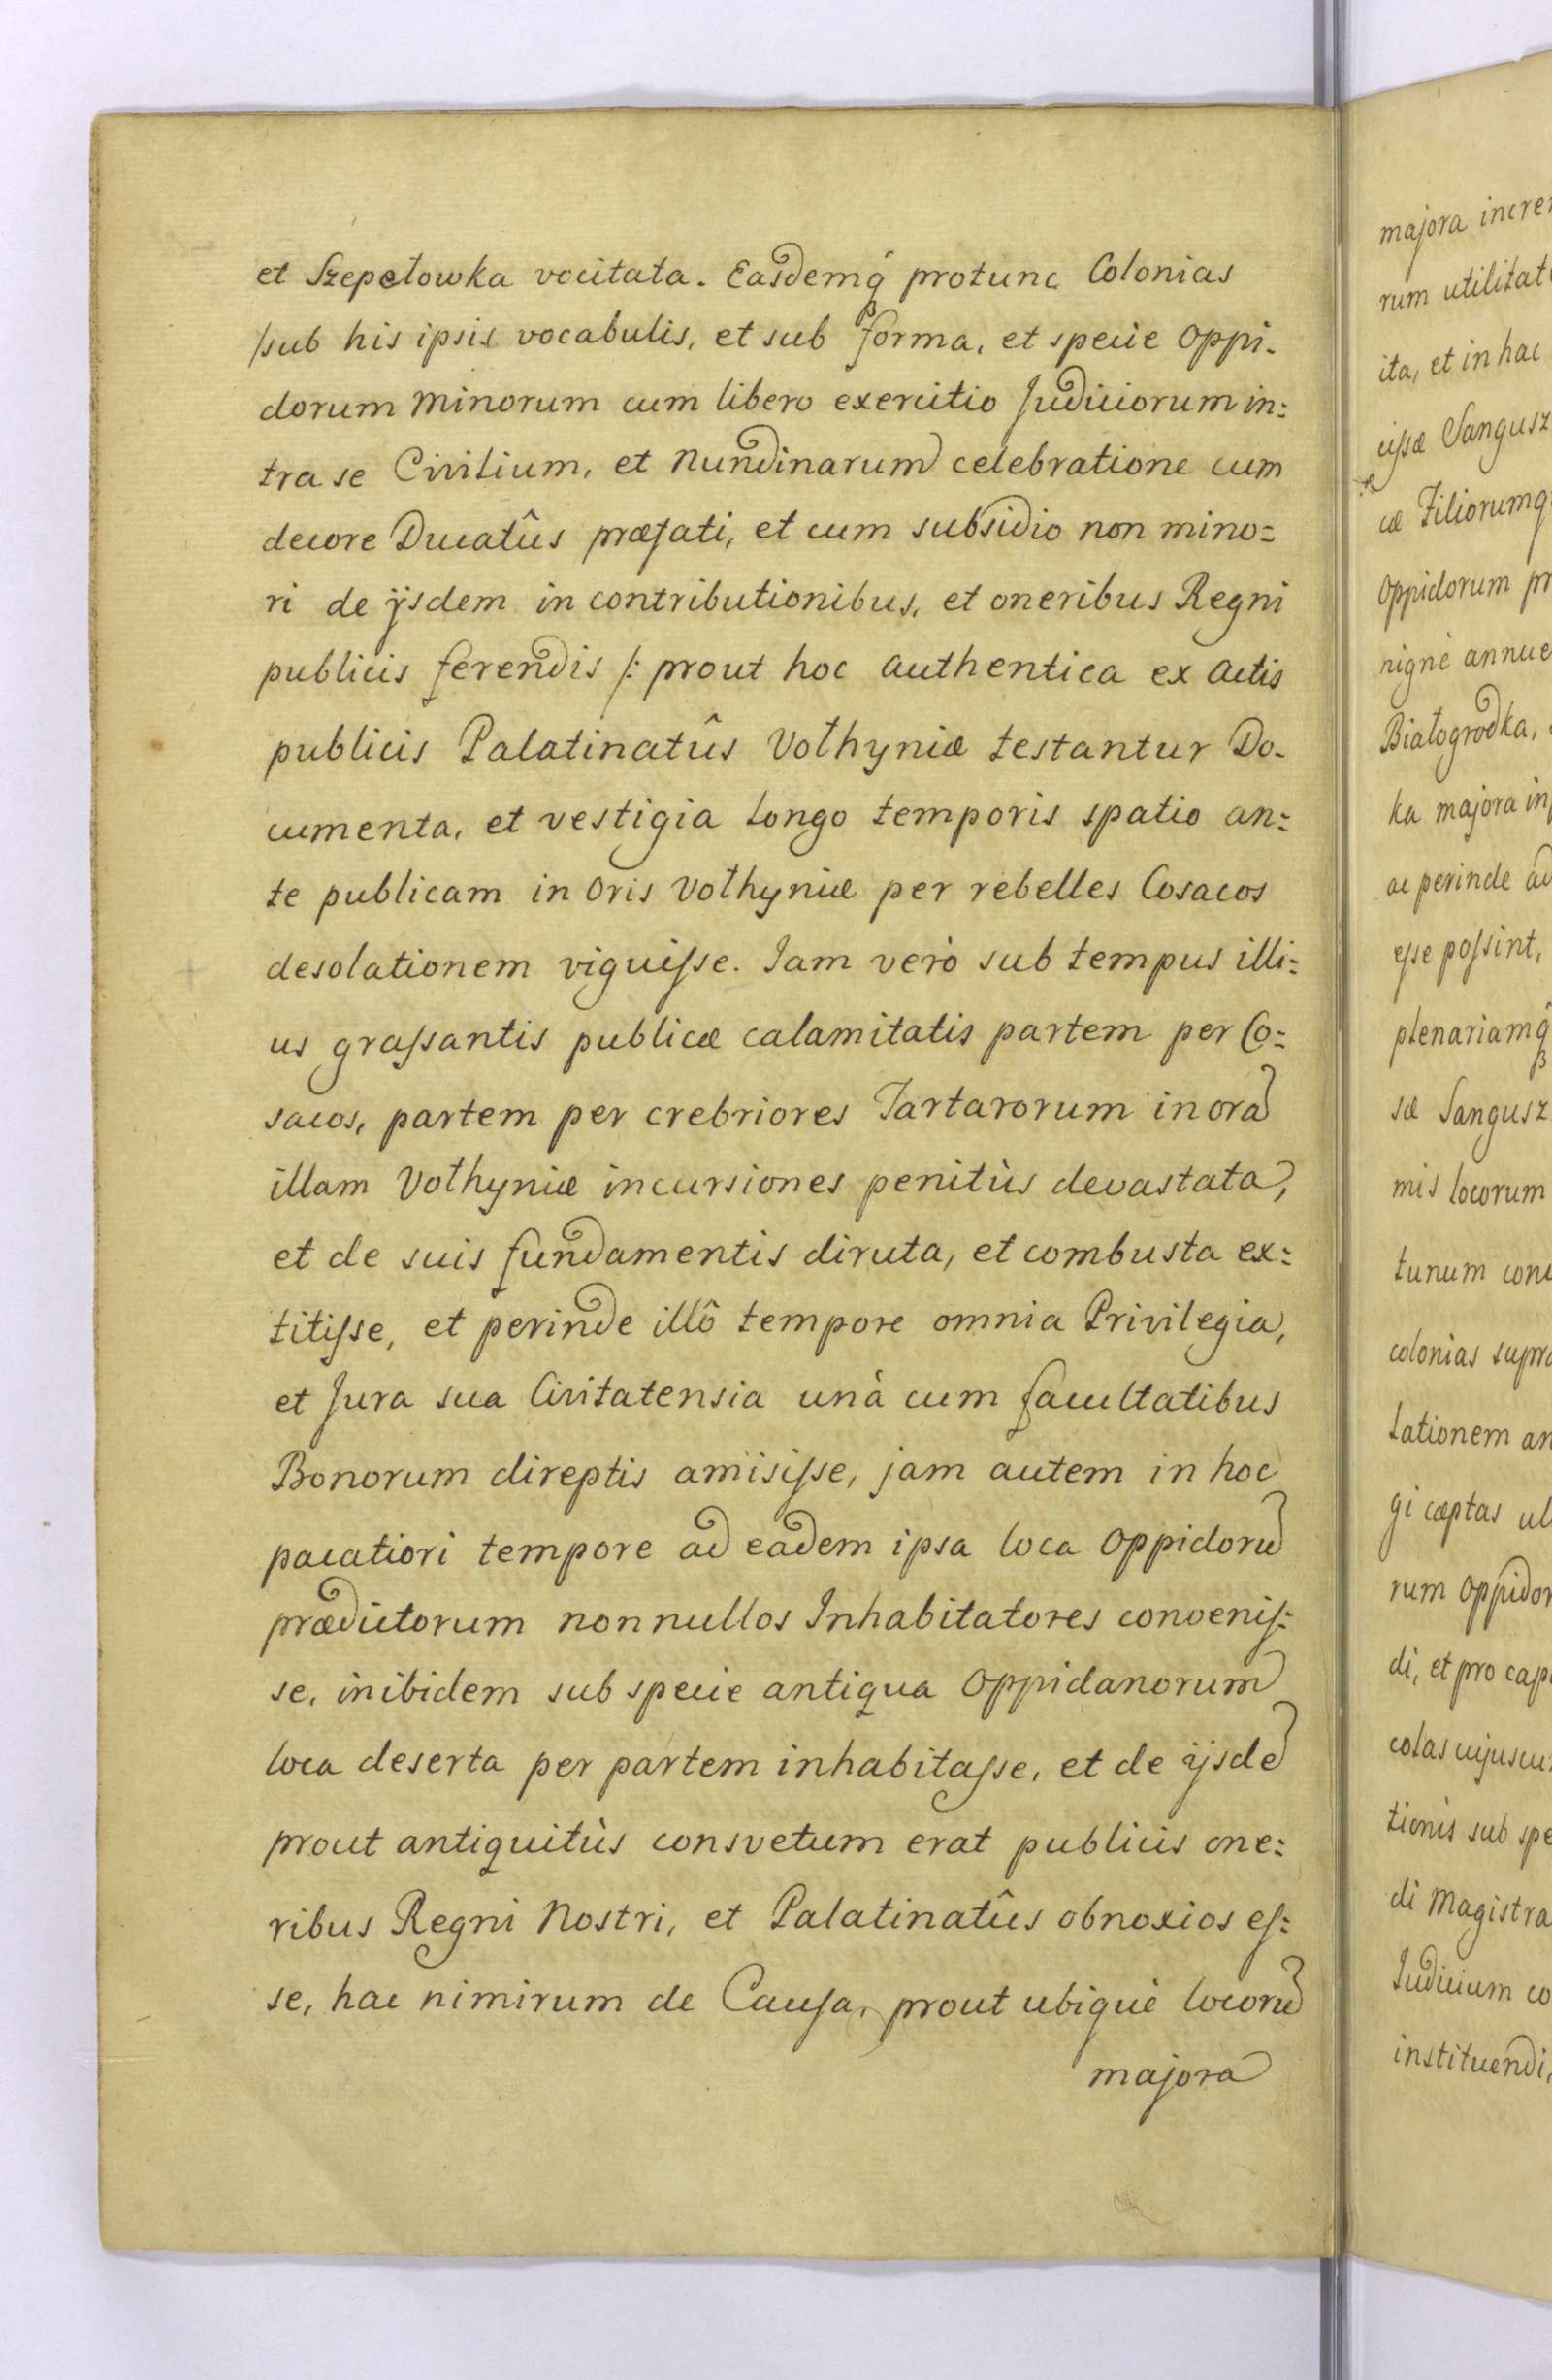 et Szepetowka vocitata. Easdemq́ protunc Colonias
/sub his ipsis vocabulis, et sub forma, et specie Oppi-
dorum Minorum cum libero exercitio Judiciorum in:
tra se Civilium, et Nundinarum celebratione cum
decore Ducatûs præfati, et cum subsidio non mino:
ri de ijsdem in contributionibus, et oneribus Regni
publicis ferendis /: prout hoc authentica ex Actis
publicis Palatinatûs Volhyniæ testantur Do-
cumenta, et vestigia longo temporis spatio an:
te publicam in Oris Volhyniæ per rebelles Cosacos
desolationem viguiſse. Iam verò sub tempus illi:
us graſsantis publicæ calamitatis partem per Co:
sacos, partem per crebriores Tartarorum in ora
illam Volhyniæ incursiones penitùs devastata,
et de suis fundamentis diruta, et combusta ex:
titiſse, et perinde illô tempore omnia Privilegia,
et Jura sua Civitatensia unà cum facultatibus
Bonorum direptis amisiſse, jam autem in hoc
pacatiori tempore ad eadem ipsa loca Oppidorū
prædictorum nonnullos Inhabitatores conveniſ:
se, inibidem sub specie antiqua Oppidanorum
loca deserta per partem inhabitaſse, et de ijsdē
prout antiquitùs consvetum erat publicis one:
ribus Regni Nostri, et Palatinatûs obnoxios eſ:
se, hac nimirum de Cauſa, prout ubiquè locorū
majora
majora
rum
ita, et in hac
Sangusz
cæ Filiorumq
Oppidorum
nignè
Białogrodka,
ka majora
ac perinde
eſse poſsint,
plenariamq́
sæ Sangusz
mis locorum
tunum
colonias
lationem
gi cæptas
rum
di, et pro
colas
tionis sub
di Magistra
Iudicium
instituendi,